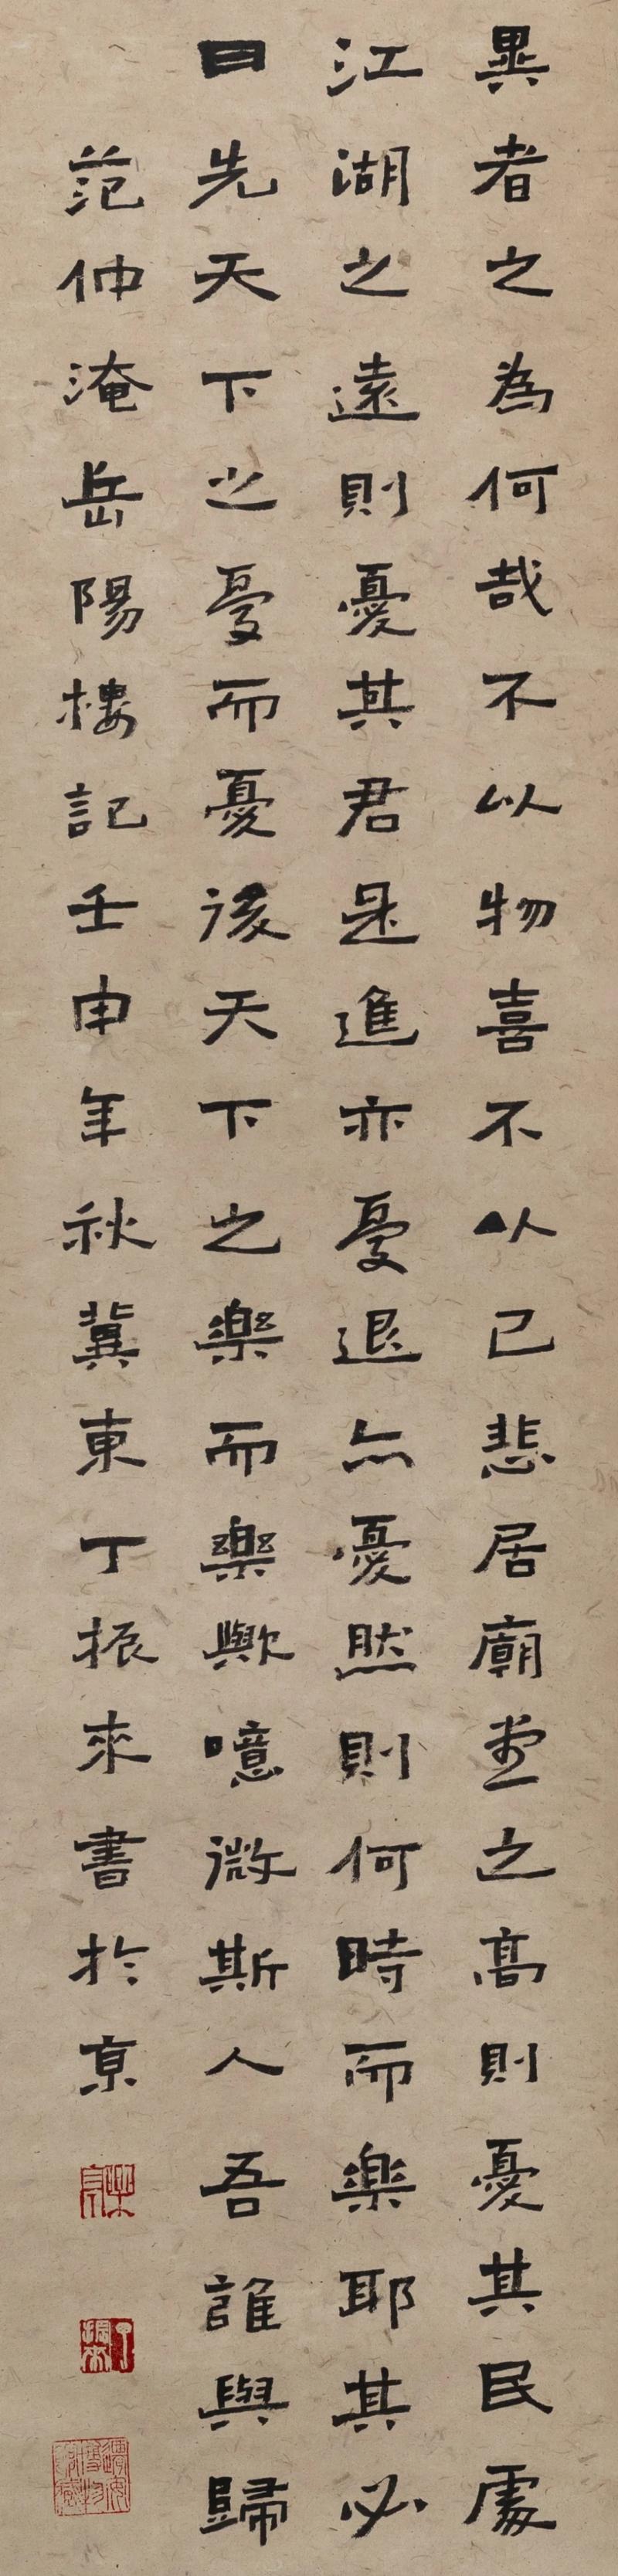 異者之為何哉不以物喜不以己悲居廟堂之高則憂其民處
江湖之遠則憂其君是進亦憂退亦憂然則何時而樂耶其必
曰先天下之憂而憂後天下之樂而樂歟噫微斯人吾誰與歸
范仲淹岳陽樓記壬申年秋冀東丁振來書於京